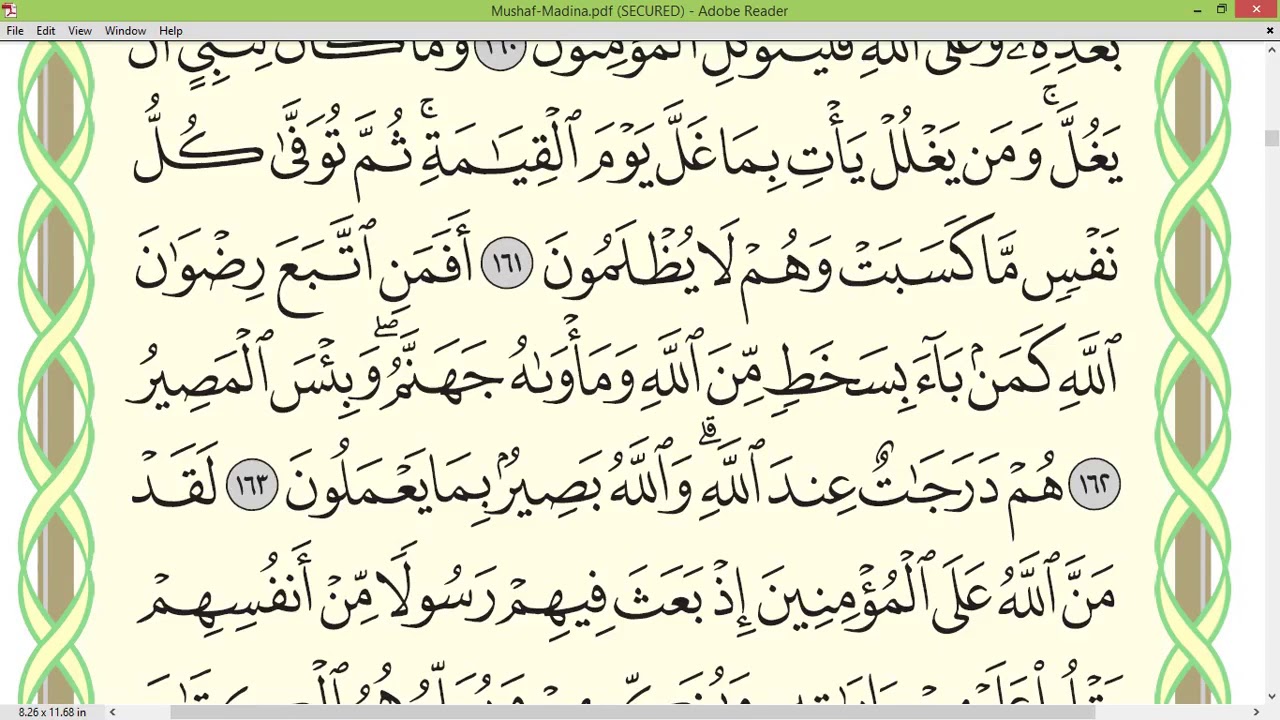 Mushaf-Madina.pdf (SECURED) - Adobe Reader
File Edit View Window Help
بَعْدِهِۦ وَعَلَى ٱللَّهِ فَلْيَتَوَكَّلِ ٱلْمُؤْمِنُونَ ١٦٠ وَمَا كَانَ لِنَبِيٍّ أَن
يَغُلَّ ۚ وَمَن يَغْلُلْ يَأْتِ بِمَا غَلَّ يَوْمَ ٱلْقِيَـٰمَةِ ۚ ثُمَّ تُوَفَّىٰ كُلُّ
نَفْسٍ مَّا كَسَبَتْ وَهُمْ لَا يُظْلَمُونَ ١٦١ أَفَمَنِ ٱتَّبَعَ رِضْوَٰنَ
ٱللَّهِ كَمَنۢ بَآءَ بِسَخَطٍ مِّنَ ٱللَّهِ وَمَأْوَىٰهُ جَهَنَّمُ ۖ وَبِئْسَ ٱلْمَصِيرُ
١٦٢ هُمْ دَرَجَـٰتٌ عِندَ ٱللَّهِ ۗ وَٱللَّهُ بَصِيرٌۢ بِمَا يَعْمَلُونَ ١٦٣ لَقَدْ
مَنَّ ٱللَّهُ عَلَى ٱلْمُؤْمِنِينَ إِذْ بَعَثَ فِيهِمْ رَسُولًا مِّنْ أَنفُسِهِمْ
8.26 x 11.68 in